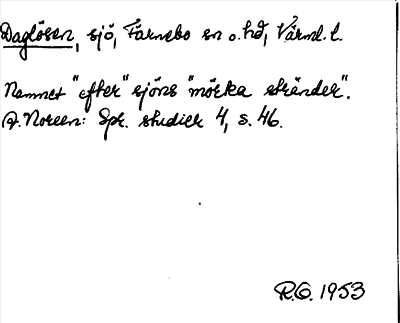 Daglösen, sjö, Färnebo sn o. hd, Värml. l.
Namnet "efter" sjöns "mörka stränder".
A. Noreen: Spr. studier 4, s. 46.
R.O. 1953